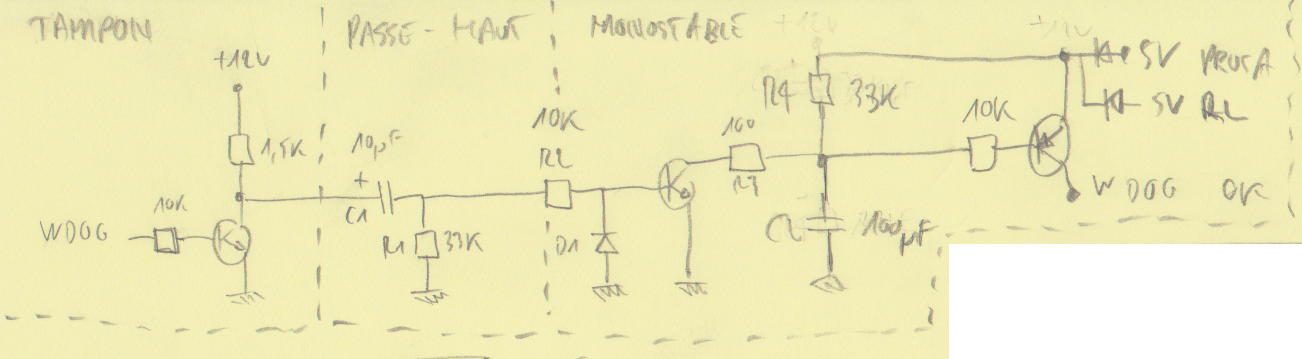 TAMPON
PASSE-HAUT
MONOSTABLE
+12V
+12V
+12V
5V PRUSA
R4 33K
5V RL
1,5K
10µF
10K
100
10K
R2
+
R3
10K
C1
WDOG OK
WDOG
R1 33K
D1
C2 100µF